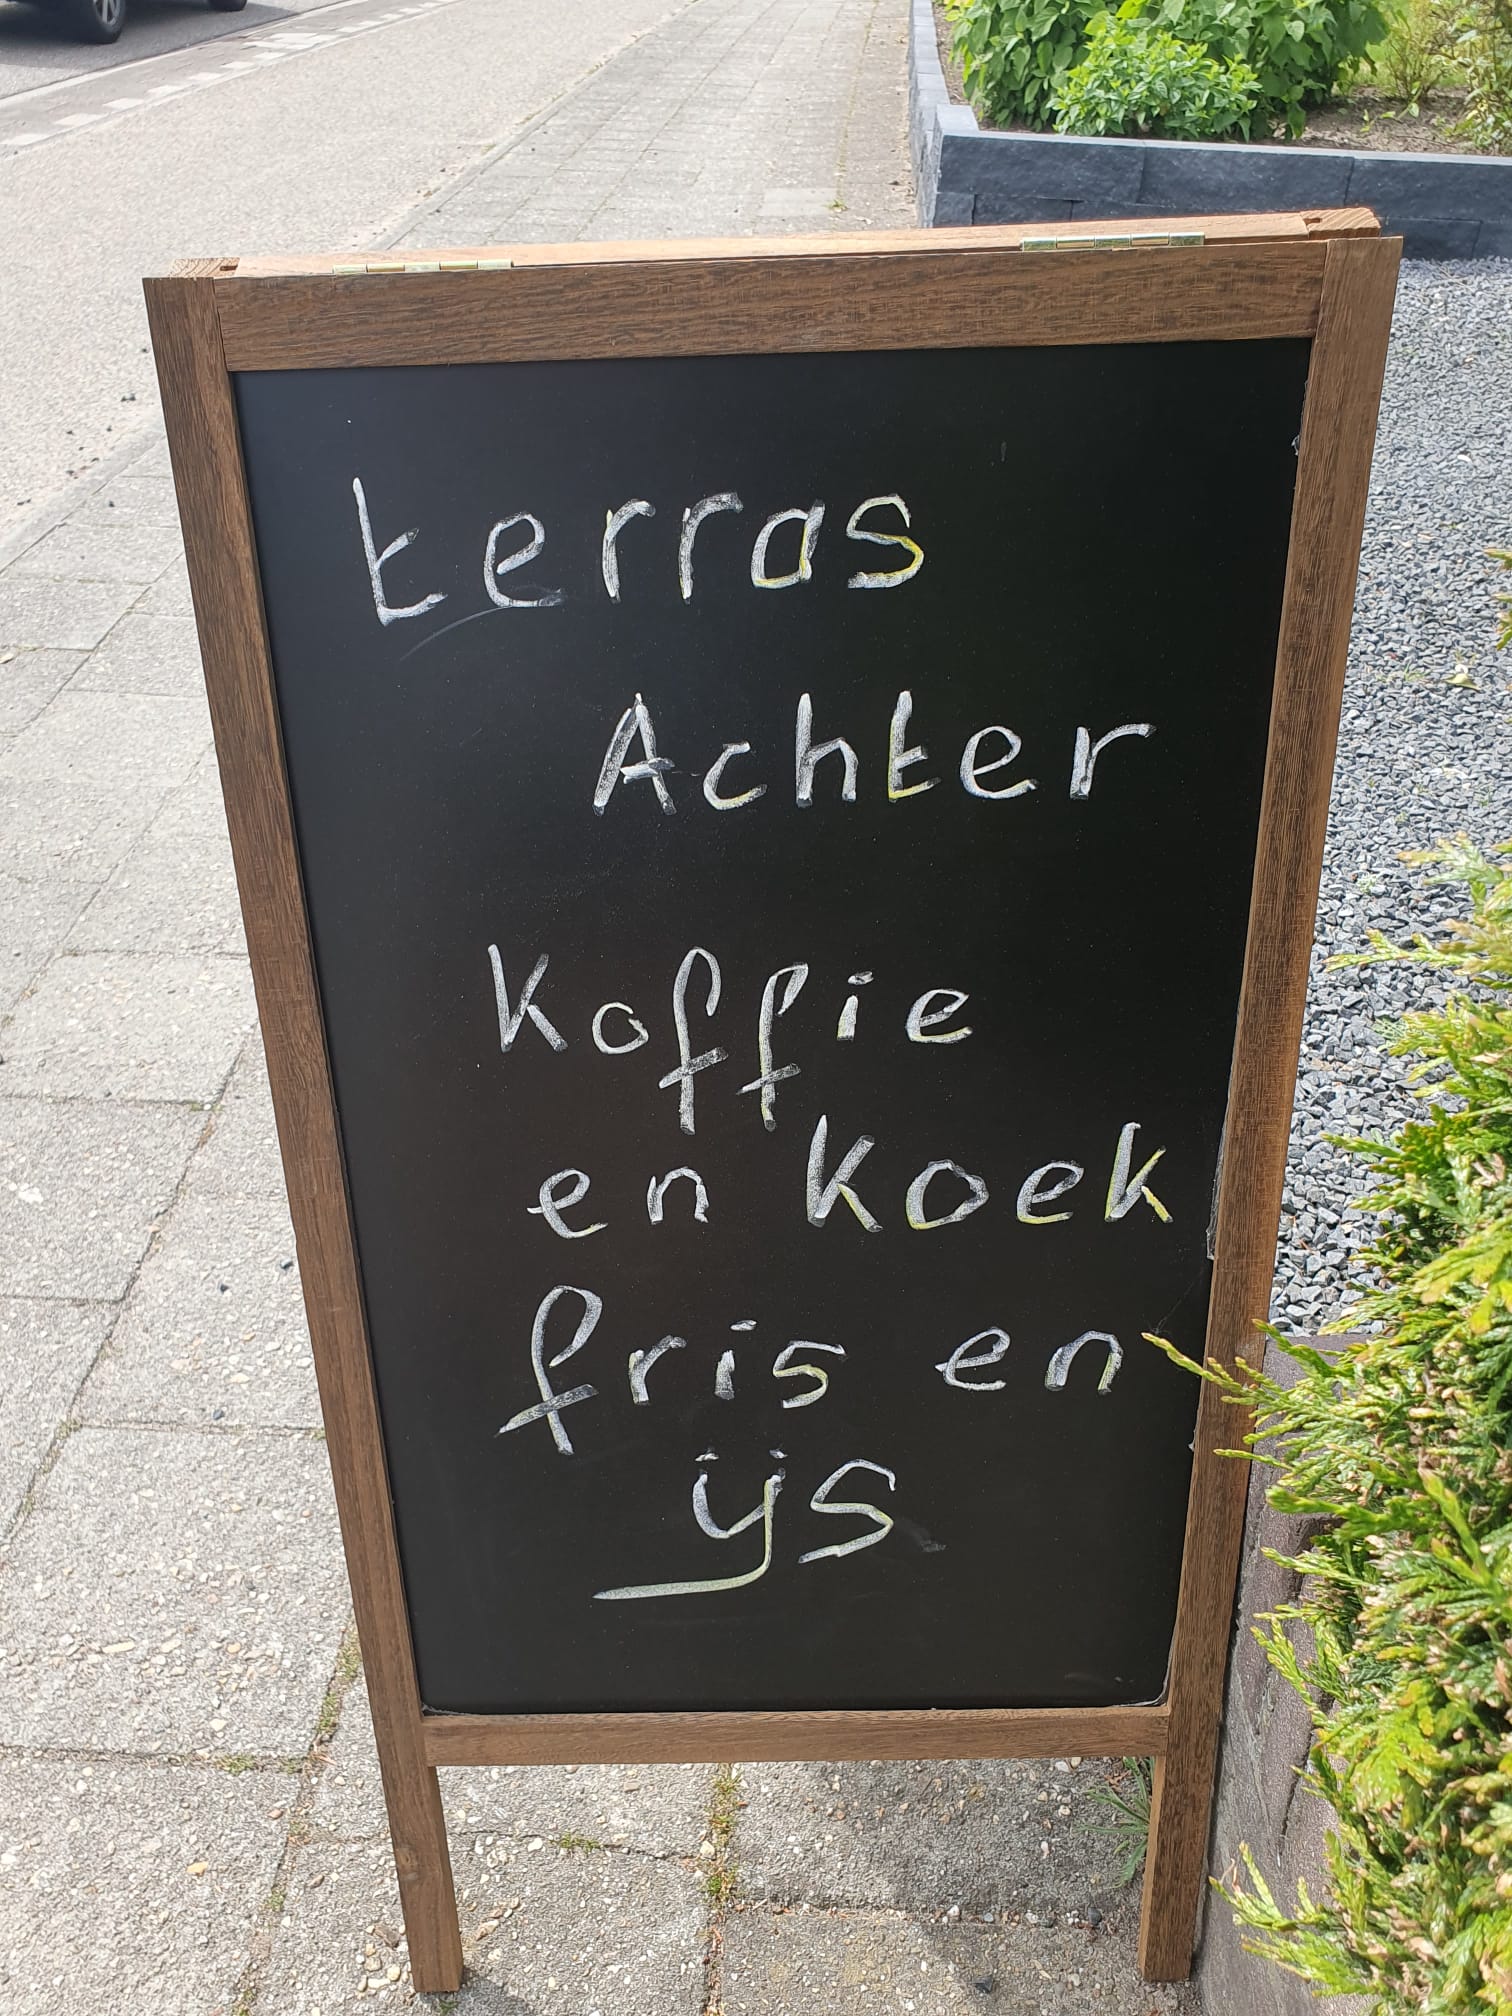 terras
Achter
Koffie
en koek
fris en
ijs